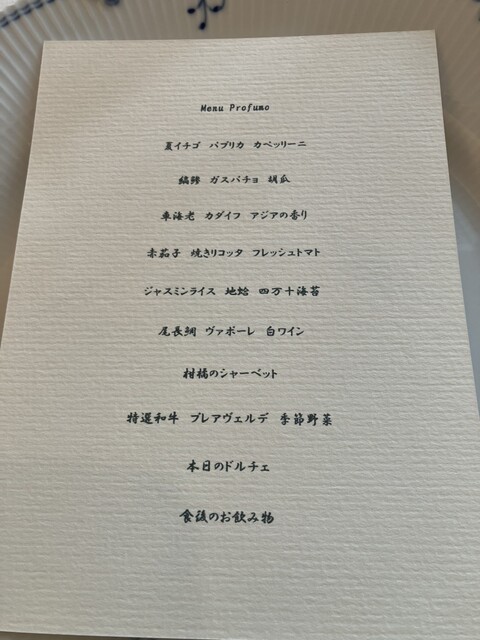 Menu Profumo
夏イチゴ パプリカ カペッリーニ
縞鯵 ガスパチョ 胡瓜
車海老 カダイフ アジアの香り
赤茄子 焼きリコッタ フレッシュトマト
ジャスミンライス 地蛤 四万十海苔
尾長鯛 ヴァポーレ 白ワイン
柑橘のシャーベット
特選和牛 プレアヴェルデ 季節野菜
本日のドルチェ
食後のお飲み物